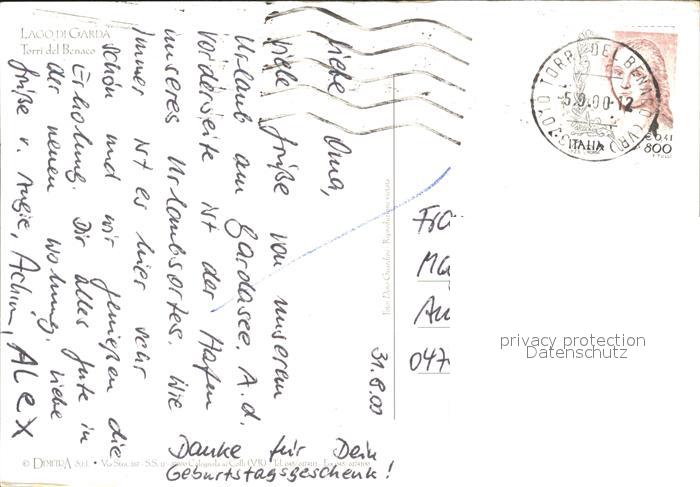 LAGO DI GARDA
Torri del Benaco
Liebe Oma,
viele Grüße von unserem
Urlaub am Gardasee. A. d.
Vorderseite ist der Hafen
unseres Urlaubsortes. Wie
immer ist es hier sehr
schön und wir genießen die
Erholung. Dir alles Gute in
der neuen Wohnung. Liebe
Grüße v. Angie, Achim, ALEX
Danke für Dein
Geburtstagsgeschenk!
31.8.00
Foto Dino Guardini - Riproduzione vietata
© DIMITRA S.r.l. • Via Stra, 167 - S.S. 11 - 37030 Colognola ai Colli (VR) - Tel. 045/6174111 - Fax 045/6174100
37010 TORRI DEL BENACO (VR)
-5.9.00-12
ITALIA
€0,41
800
Fra
Ma
Au
047
privacy protection
Datenschutz